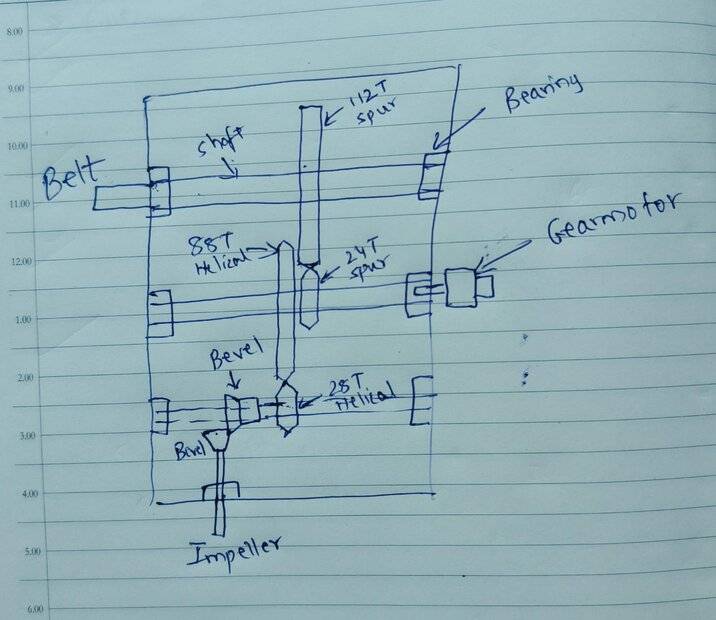 8.00
9.00
112T
spur
Bearing
10.00
Shaft
Belt
11.00
Gearmotor
88T
Helical
24T
spur
12.00
1.00
Bevel
2.00
28T
Helical
3.00
Bevel
4.00
5.00
Impeller
6.00